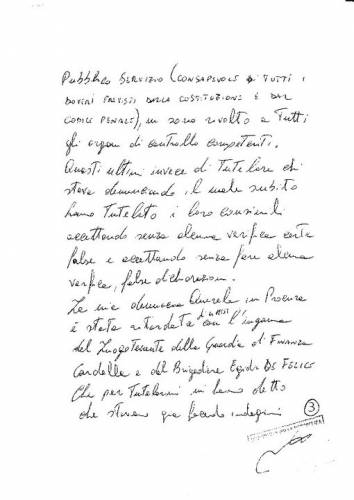 Pubblico SERVIZIO (CONSAPEVOLE DI TUTTI I
DOVERI PREVISTI DALLA COSTITUZIONE E DAL
CODICE PENALE), mi sono rivolto a Tutti
gli organi di controllo competenti.
Questi ultimi invece di Tutelare chi
stava denunciando il male subito
hanno Tutelato i loro consimili
accettando senza alcuna verifica carte
false e accettando senza fare alcuna
verifica, false dichiarazioni.
La mia denuncia Querela in Procura
è stata ritardata con l'inganno
del Luogotenente della Guardia di FINANZA
Cardella e del Brigadiere Egidio DE FELICE
Che per Tutelarmi mi hanno detto
che stavano già facendo indagini
3